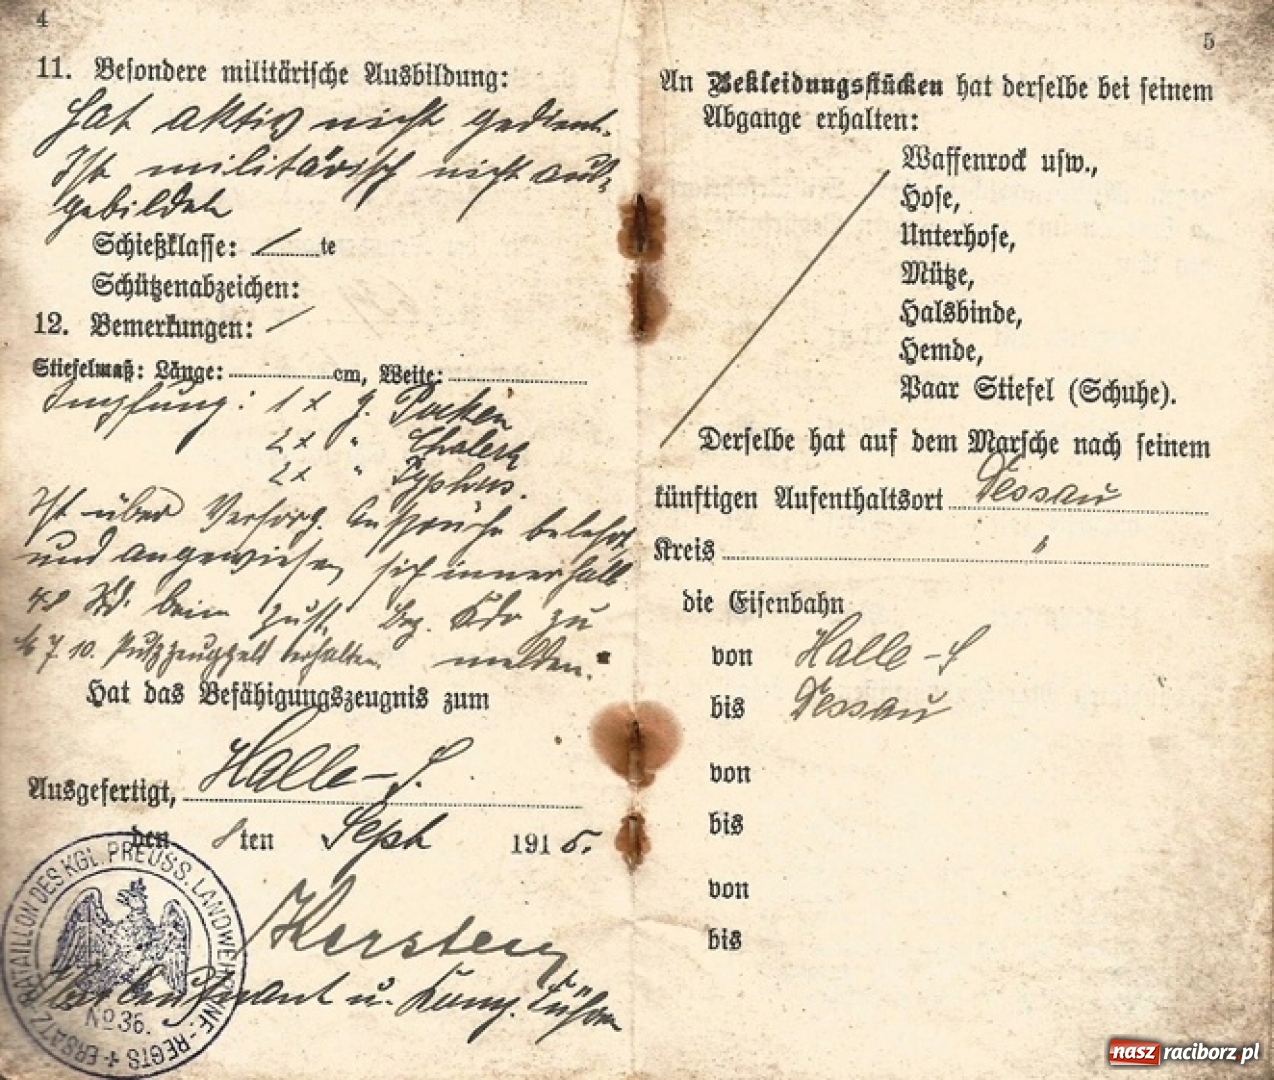 4
11. Besondere militärische Ausbildung:
Hat aktiv nicht gedient.
Ist militärisch nicht aus-
gebildet
Schießklasse: / te
Schützenabzeichen:
12. Bemerkungen: /
Stiefelmaß: Länge: cm, Weite:
Impfung: 1 x g. Pocken
2 x " Cholera
2 x " Typhus.
Ist über Versorg. Ansprüche belehrt
und angewiesen sich innerhalb
48 Std. beim zust. Bez. Kdo zu
7. 10. Putzzeuggeld erhalten melden.
Hat das Befähigungszeugnis zum
Ausgefertigt, Halle-S.
den 8ten Sept 1915.
Kersten
Oberleutnant u. Komp. Führer
ERSATZ BATAILLON DES KGL. PREUSS. LANDWEHR INF.-REGTS +
No 36.
5
An Bekleidungsstücken hat derselbe bei seinem
Abgange erhalten:
Waffenrock usw.,
Hose,
Unterhose,
Mütze,
Halsbinde,
Hemde,
Paar Stiefel (Schuhe).
Derselbe hat auf dem Marsche nach seinem
künftigen Aufenthaltsort Dessau
Kreis "
die Eisenbahn
von Halle-S
bis Dessau
von
bis
von
bis
nasz raciborz.pl